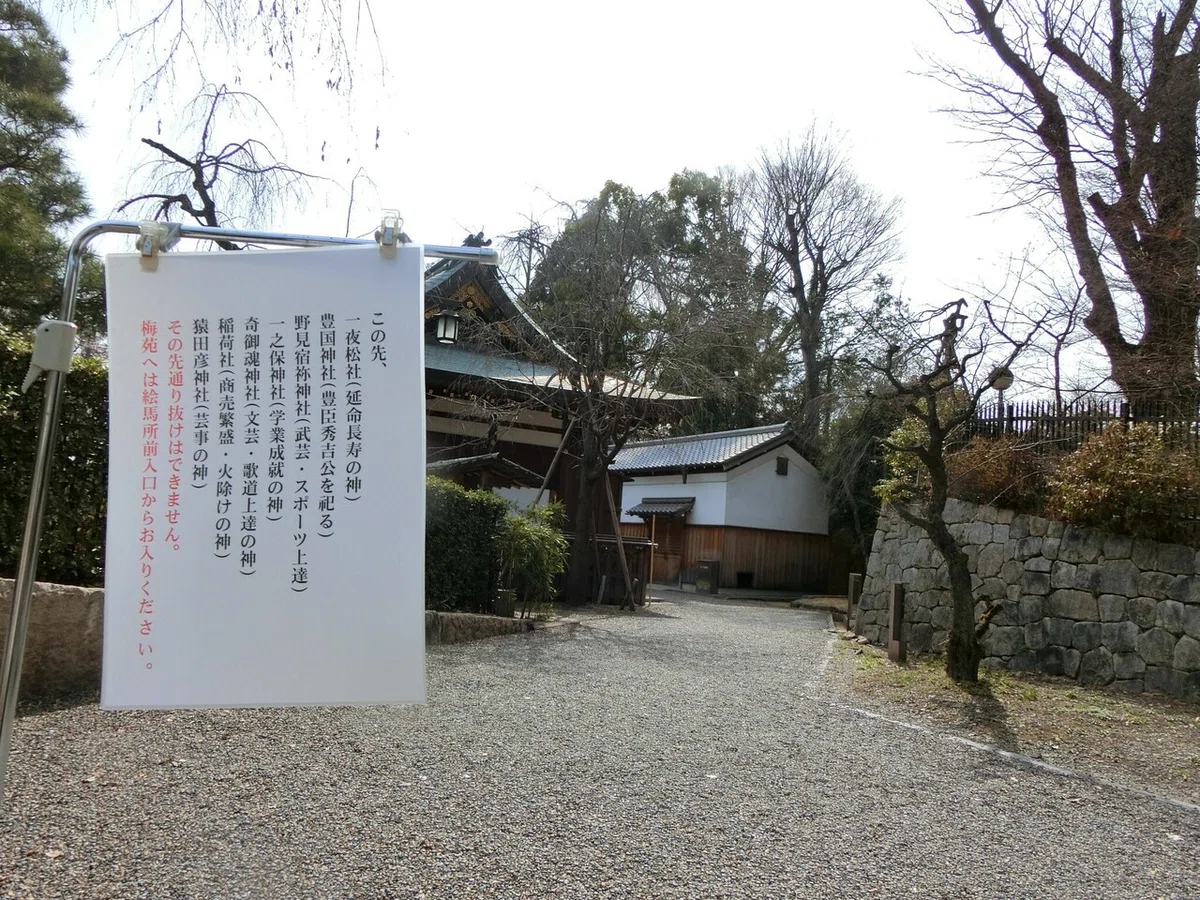 この先、
一夜松社(延命長寿の神)
豊国神社(豊臣秀吉公を祀る)
野見宿祢神社(武芸・スポーツ上達)
一之保神社(学業成就の神)
奇御魂神社(文芸・歌道上達の神)
稲荷社(商売繁盛・火除けの神)
猿田彦神社(芸事の神)
その先通り抜けはできません。
梅苑へは絵馬所前入口からお入りください。